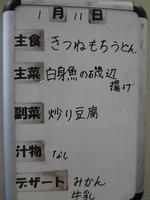 1月11日
主食 きつねもちうどん
主菜 白身魚の磯辺
揚げ
副菜 炒り豆腐
汁物 なし
デザート みかん
牛乳